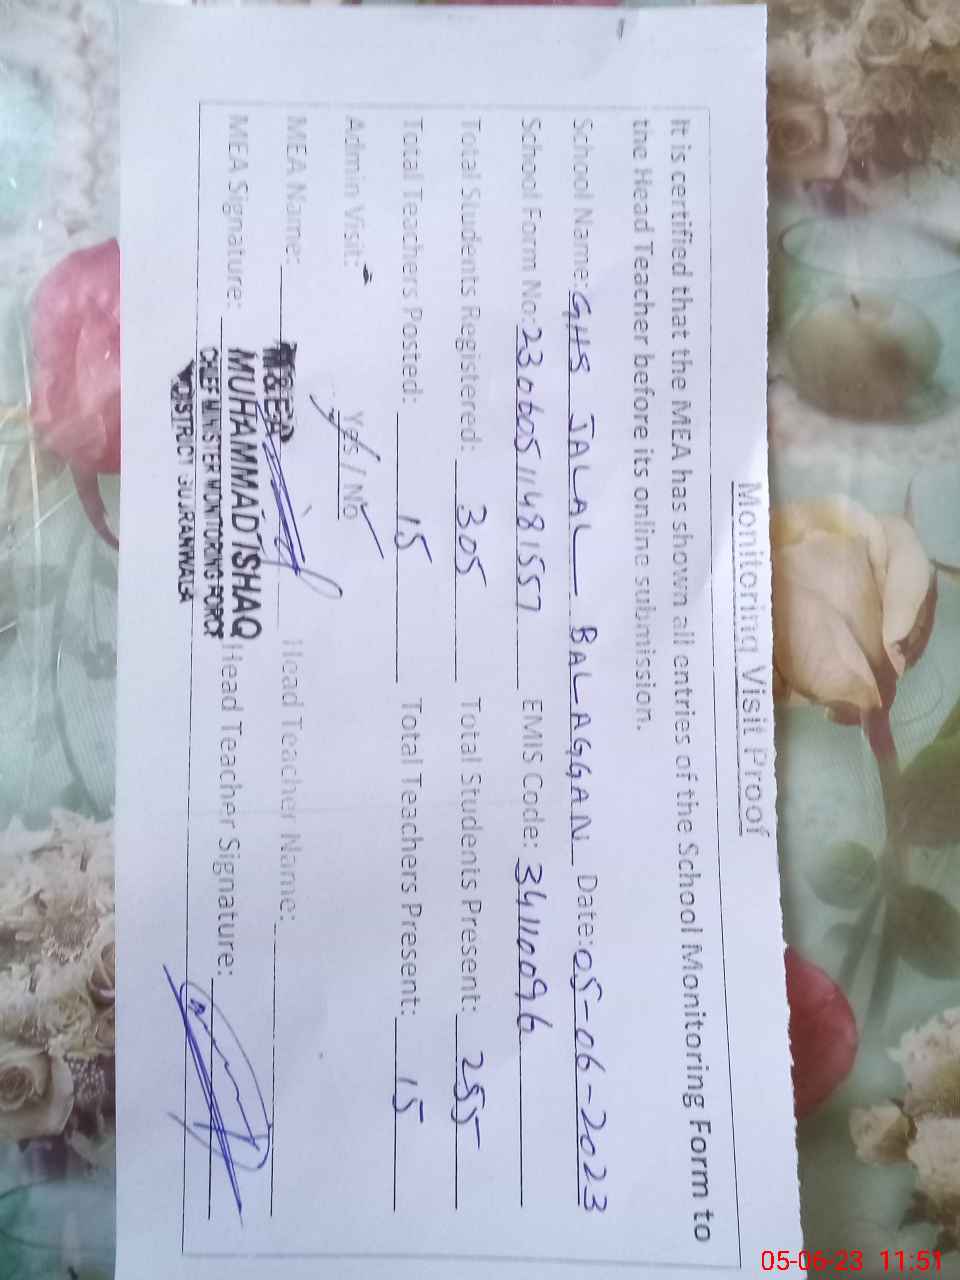 Monitoring Visit Proof
It is certified that the MEA has shown all entries of the School Monitoring Form to
the Head Teacher before its online submission.
School Name: GHS JALAL BALAGGAN Date: 05-06-2023
School Form No: 23060511481557 EMIS Code: 34110096
Total Students Registered: 305 Total Students Present: 255
Total Teachers Posted: 15 Total Teachers Present: 15
Admin Visit: Yes / No
MEA Name: Head Teacher Name:
M&EA
MEA Signature: Head Teacher Signature:
MUHAMMAD ISHAQ
CHIEF MINISTER MONITORING FORCE
DISTRICT GUJRANWALA
05-06-23 11:51